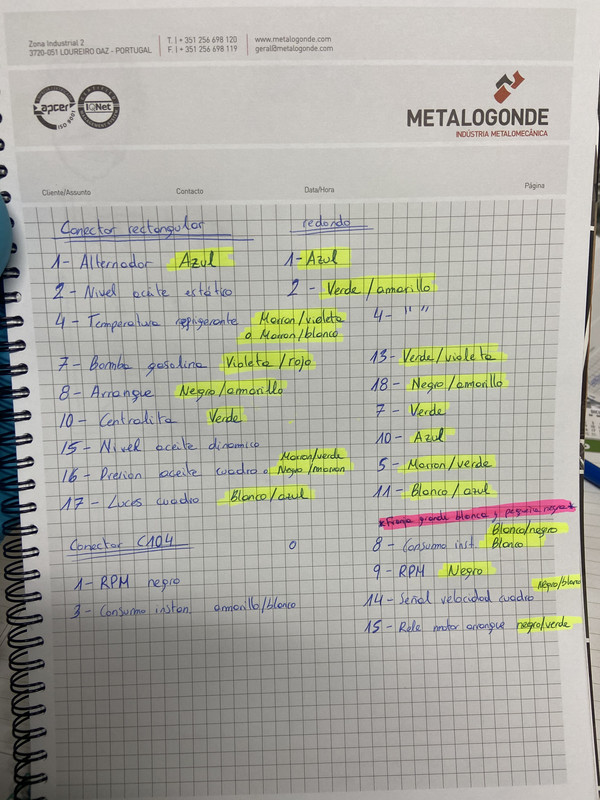 Zona Industrial 2
3720-051 LOUREIRO OAZ - PORTUGAL
T. | + 351 256 698 120
F. | + 351 256 698 119
www.metalogonde.com
geral@metalogonde.com
apcer
ISO 9001
IQNet
METALOGONDE
INDÚSTRIA METALOMECÂNICA
Cliente/Assunto Contacto Data/Hora Página
Conector rectangular redondo
1- Alternador Azul 1- Azul
2- Nivel aceite estático 2- Verde/amarillo
4- Temperatura refrigerante Marron/violeta 4- " "
o Marron/blanco
7- Bomba gasolina Violeta/rojo 13- Verde/violeta
8- Arranque Negro/amarillo 18- Negro/amarillo
10- Centralita Verde 7- Verde
15- Nivel aceite dinamico 10- Azul
Marron/verde
16- Presion aceite cuadro o Negro/marron 5- Marron/verde
17- Luces cuadro Blanco/azul 11- Blanco/azul
*Franja grande blanca y pequeña negra*
Blanco/negro
Conector C104 o 8- Consumo inst. Blanco
1- RPM negro 9- RPM Negro
Negro/blanco
3- Consumo instan. amarillo/blanco 14- Señal velocidad cuadro
15- Rele motor arranque negro/verde